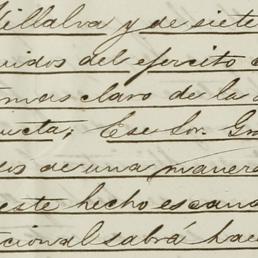 Villalva y de siete
uidos del ejercito
mas claro de la
ucta; Ese Sor. Gra
os de una manera
este hecho escan
cional sabrá hac